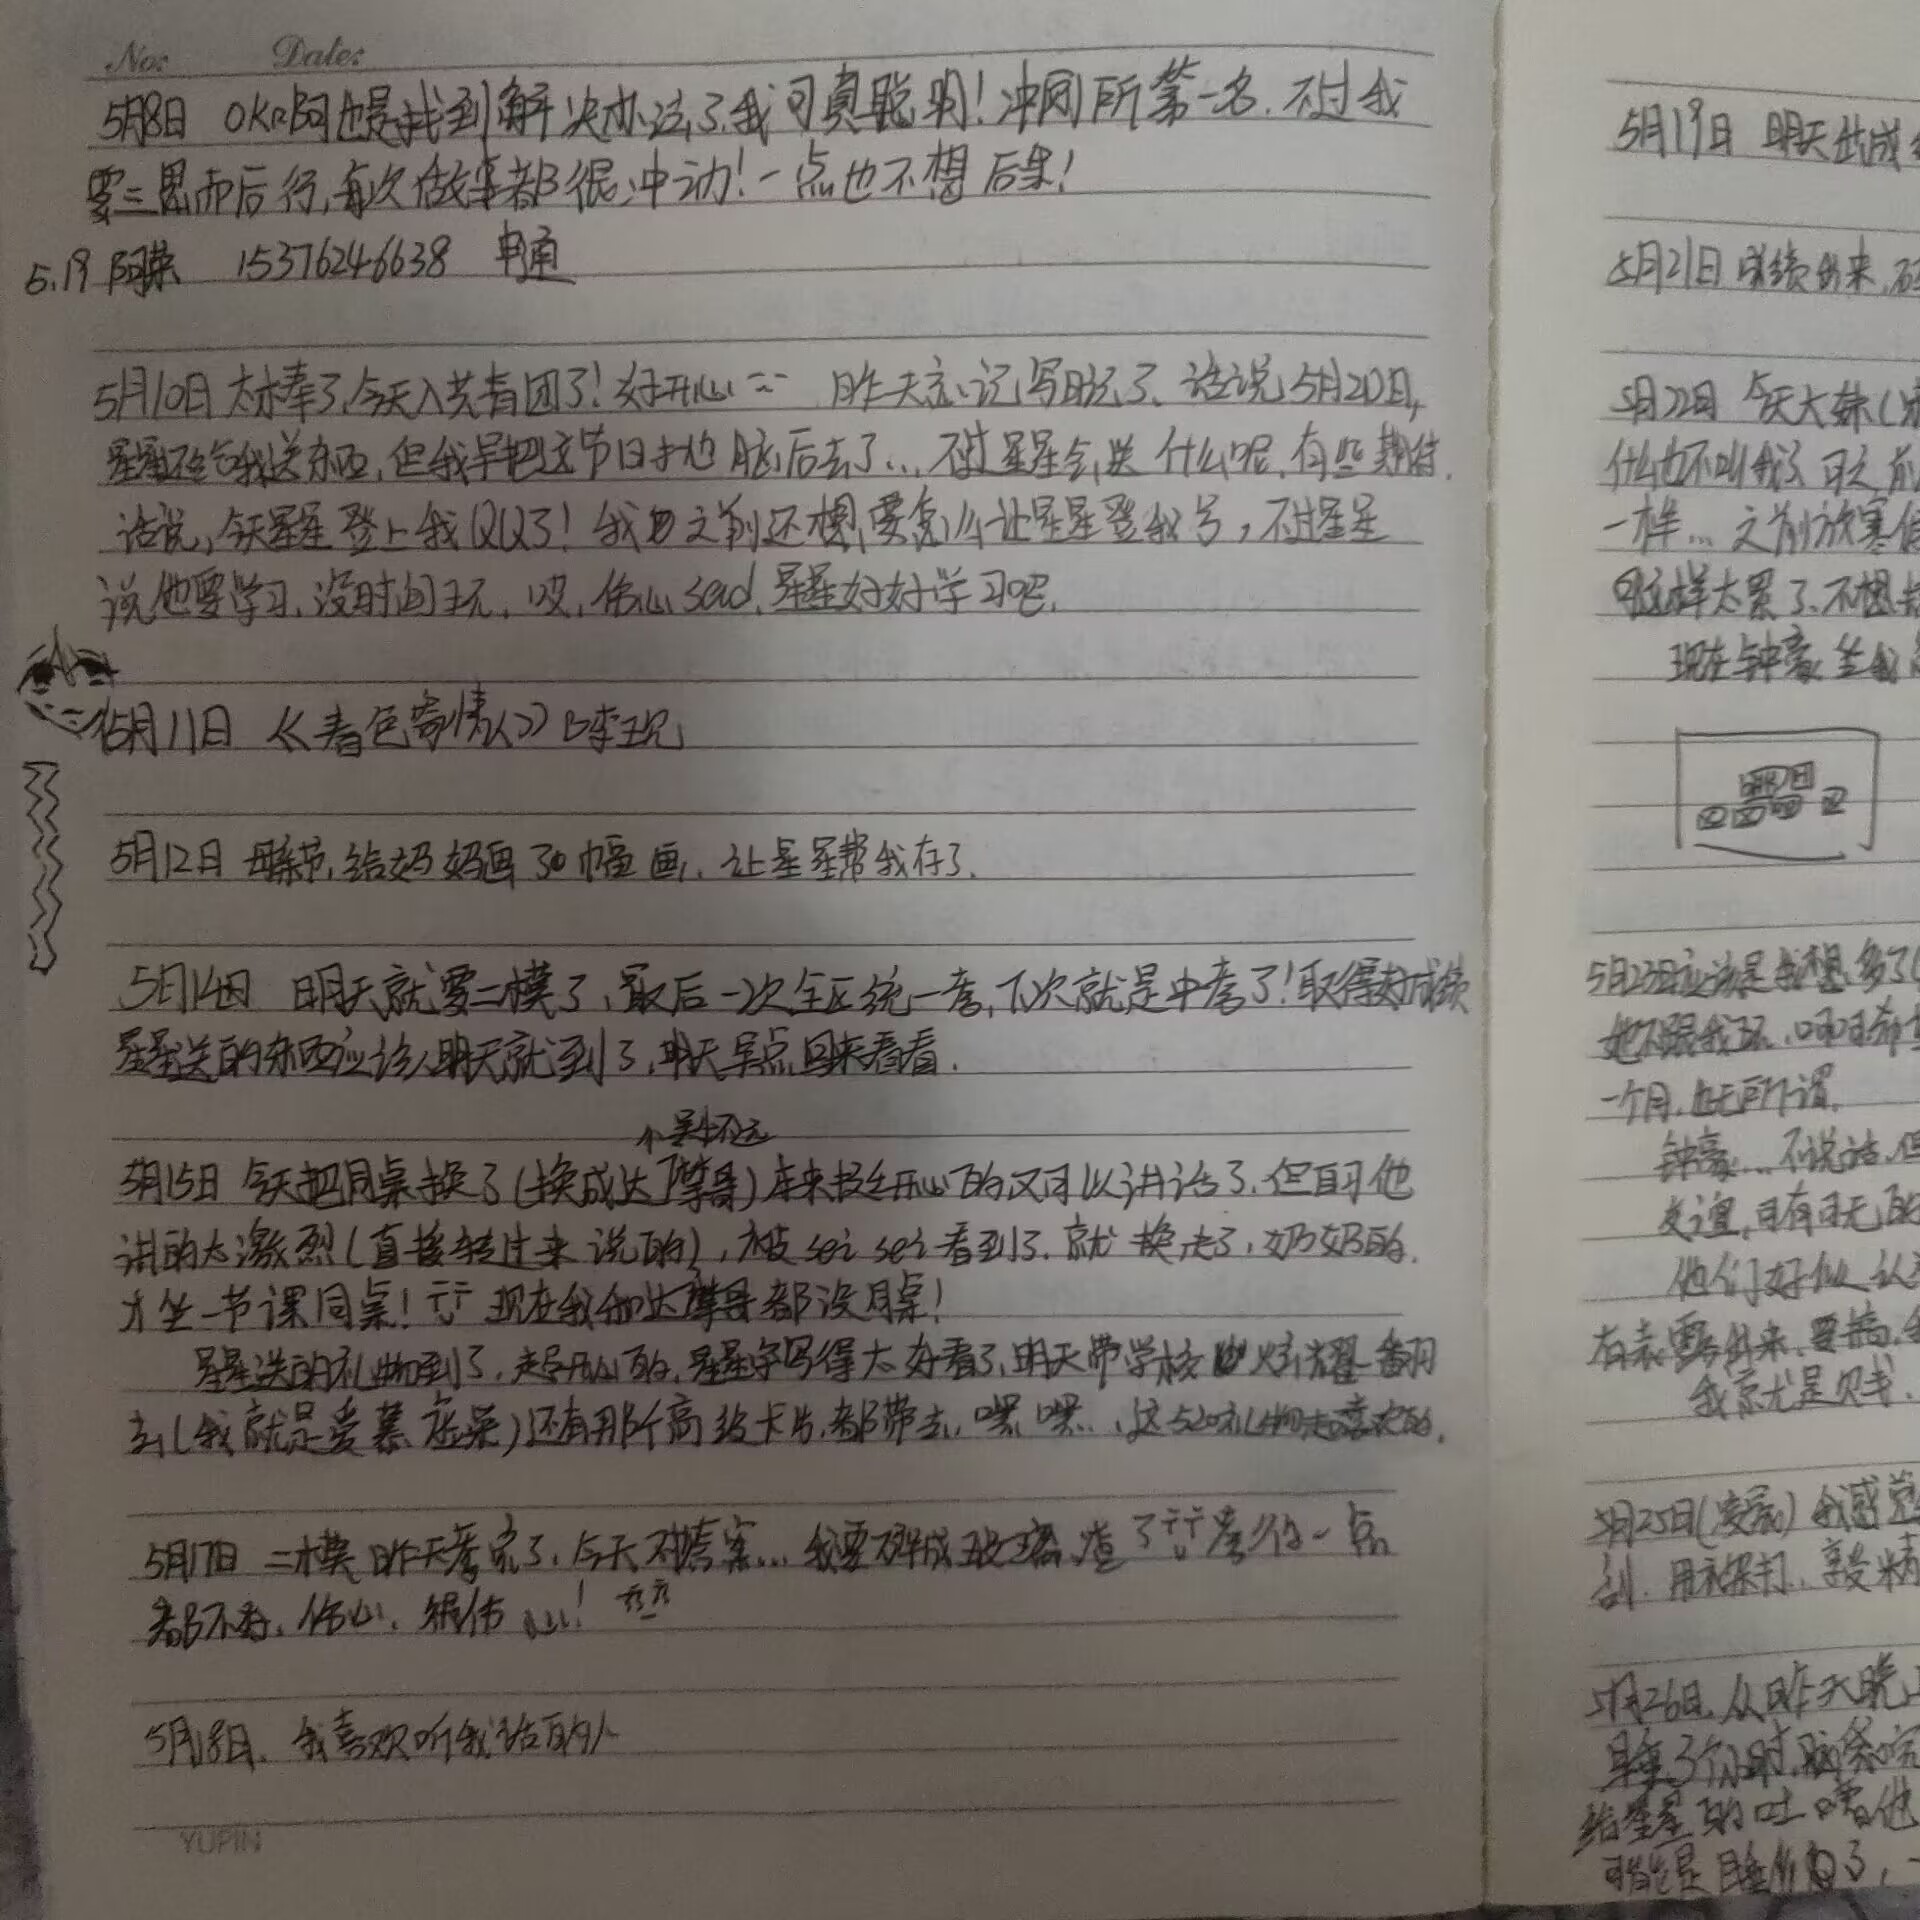 No: Date:
5月8日 OK啊也是找到解决办法了,我可真聪明!冲网所第一名.不过我
要三思而后行,每次做事都很冲动!一点也不想后果!
5.19 阿荣 15376246638 申通
5月10日 太棒了,今天入共青团了!好开心 昨天忘记写日记了、话说5月20日,
星星还给我送东西,但我早把这节日抛脑后去了...不过星星会送什么呢,有些期待.
话说,今天星星登上我QQ了!我之前还想要怎么让星星登我号,不过星星
说他要学习,没时间玩,哎,伤心sad,星星好好学习吧.
5月11日 《春色寄情人》李现
5月12日 母亲节,给妈妈画了幅画,让星星帮我存了.
5月14日 明天就要二模了,最后一次全区统一考,下次就是中考了!取得好成绩
星星送的东西应该明天就到了,明天早点回来看看.
5月15日 今天把同桌换了(换成达摩哥)本来挺开心的又可以讲话了.但自习他
讲的太激烈(直接转过来说的),被sei sei看到了.就换走了,奶奶的.
才坐一节课同桌! 现在我和达摩哥都没同桌!
星星送的礼物到了,超开心的,星星字写得太好看了,明天带学校炫耀一番
去(我就是爱慕虚荣)还有那个高级卡片,都带去,嘿嘿...这520礼物超喜欢的.
5月17日 二模昨天考完了,今天对答案...我要碎成玻璃渣了 考得一点
都不好,伤心,很伤心!
5月18日、我喜欢听我话的人
YUPIN
5月19日 明天出成
5月21日 成绩出来,
5月22日 今天大妹(
什么也不叫我了
一样...之前放寒假
这样太累了、不想
现在钟豪坐我
5月23日应该是我想多了(
她不跟我玩,
一个月,也无所谓.
钟豪...不说话,但
友谊,
他们好似认
有表露出来,要搞
我就是贱.
5月25日
5月26日、从昨天晚上
给星星 吐嘈他
可能是